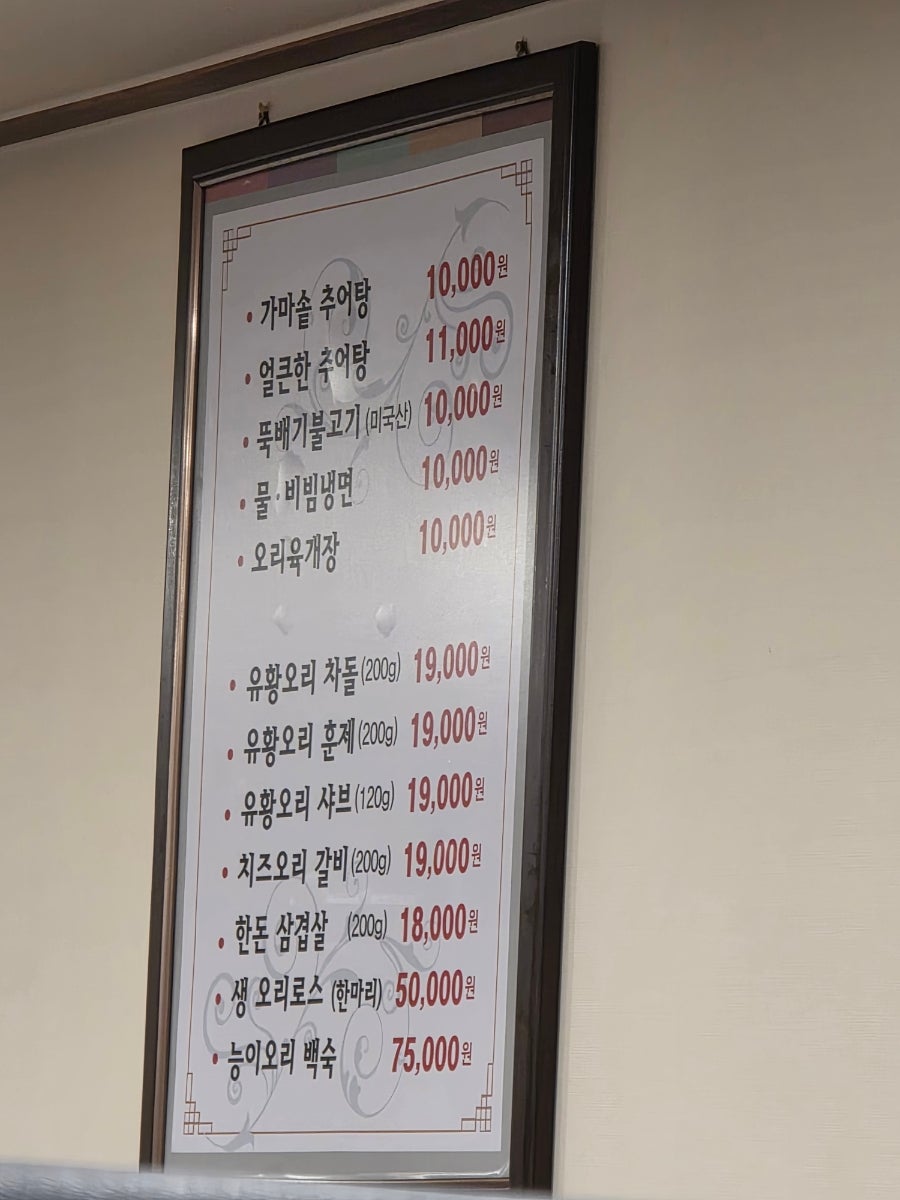 • 가마솥 추어탕 10,000원
• 얼큰한 추어탕 11,000원
• 뚝배기불고기 (미국산) 10,000원
• 물·비빔냉면 10,000원
• 오리육개장 10,000원
• 유황오리 차돌(200g) 19,000원
• 유황오리 훈제(200g) 19,000원
• 유황오리 샤브(120g) 19,000원
• 치즈오리 갈비(200g) 19,000원
• 한돈 삼겹살 (200g) 18,000원
• 생 오리로스 (한마리) 50,000원
• 능이오리 백숙 75,000원